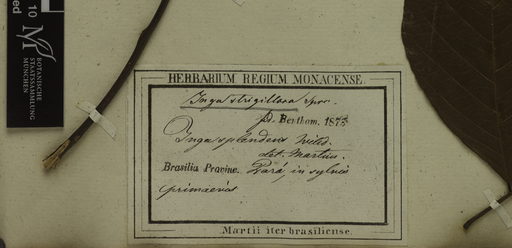 10
M
BOTANISCHE
STAATSSAMMLUNG
MÜNCHEN
HERBARIUM REGIUM MONACENSE.
Inga strigillosa Spr.
jd. Benthom. 1875
Inga splendens Willd.
det. Martius.
Brasilia Provinc. Pará, in sylvis
primaevis
Martii iter brasiliense.